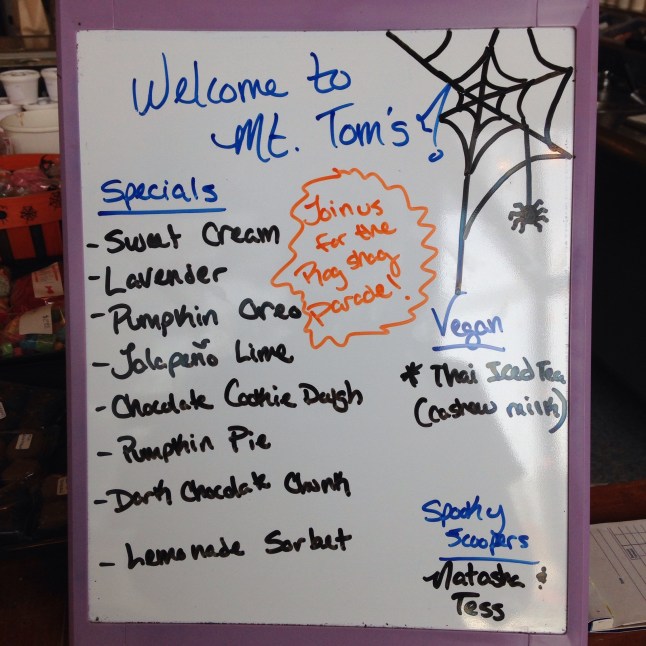 Welcome to
Mt. Tom's!
Specials
- Sweet Cream
- Lavender
- Pumpkin Oreo
- Jalapeño Lime
- Chocolate Cookie Dough
- Pumpkin Pie
- Dark Chocolate Chunk
- Lemonade Sorbet
Join us
for the
Rag shag
parade!
Vegan
* Thai Iced Tea
(cashew milk)
Spooky
Scoopers
Natasha &
Tess